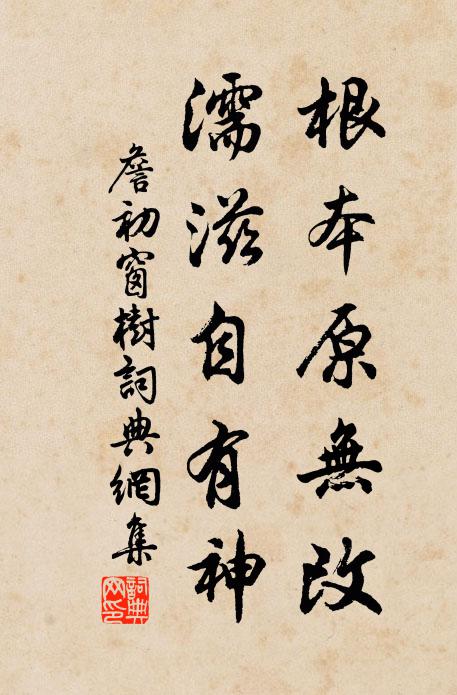 根本原無改
濡滋自有神
詹初窗樹詞典網集
詞典網印